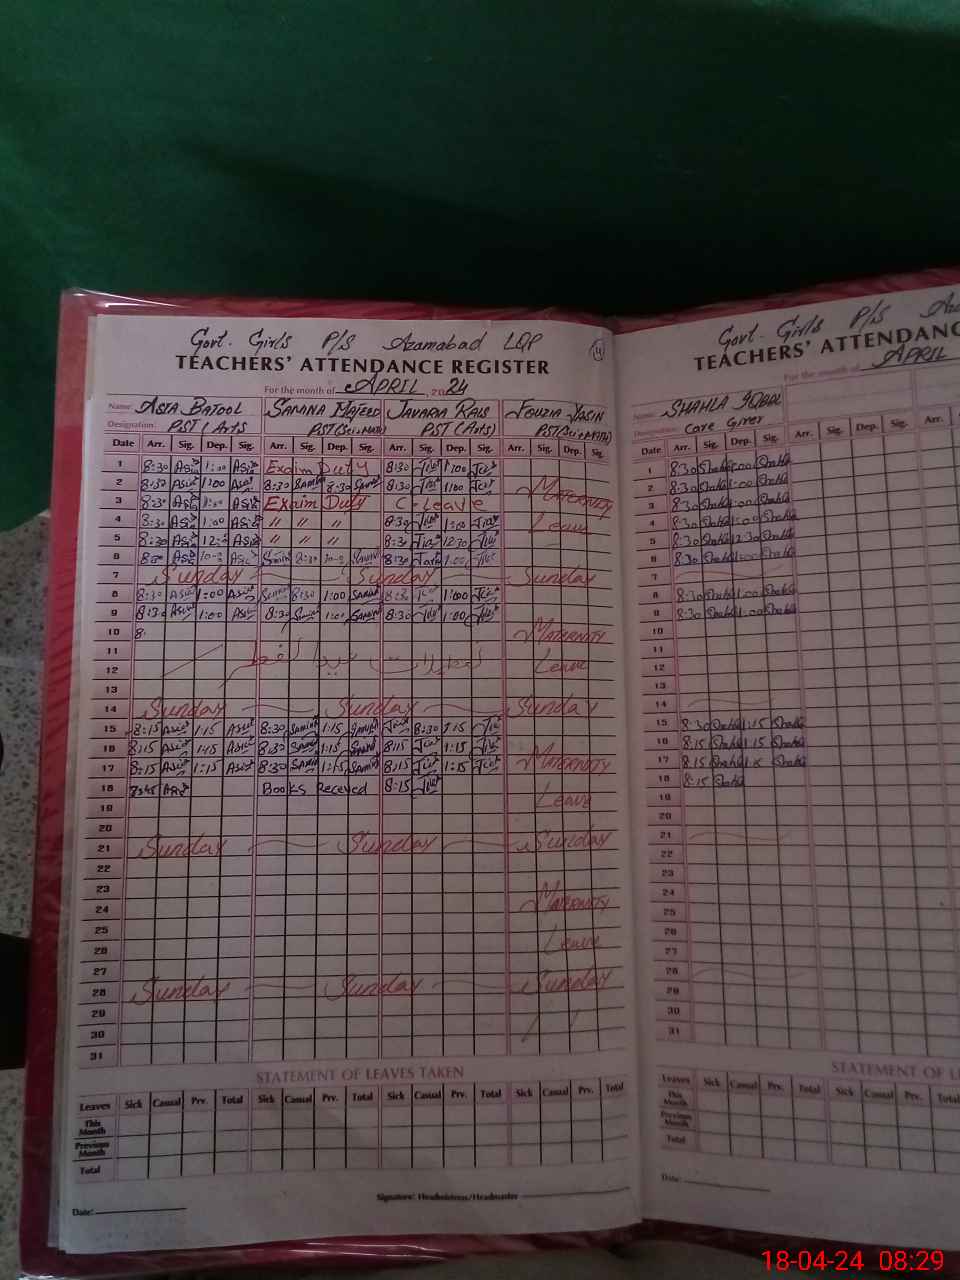 Govt. Girls P/S Azamabad LQP
TEACHERS' ATTENDANCE REGISTER
14
For the month of APRIL, 2024
Name: ASIA BATOOL SAMINA MAJEED JAVARIA RAIS FOUZIA YASIN
Designation: PST (Arts PST(Sci+Math) PST (Arts) PST(Sci+MATH)
Date Arr. Sig. Dep. Sig. Arr. Sig. Dep. Sig. Arr. Sig. Dep. Sig. Arr. Sig. Dep. Sig.
1 8:30 Asia 1:00 Asia Exaim Duty 8:30 1:00
2 8:30 Asia 1:00 Asia 8:30 Samina 8:30 Samina 8:30 1:00 MATERNITY
3 8:30 Asia Asia Exaim Duty C-Leave
4 8:30 Asia 1:00 Asia " " " 8:30 1:00 Leave
5 8:30 Asia Asia " " " 8:30 12:30
6 Asia Asia 8:30 8:30 1:00
7 Sunday Sunday Sunday
8 8:30 Asia 1:00 Asia 8:30 1:00 Samina 8:30 1:00
9 8:30 Asia 1:00 Asia 8:30 1:00 Samina 8:30 1:00
10 8: MATERNITY
11 عيد الفطر
12 Leave
13
14 Sunday Sunday Sunday
15 8:15 Asia 1:15 Asia 8:30 Samina 1:15 Samina 8:30 1:15
16 8:15 Asia 1:15 Asia 8:30 Samina 1:15 Samina 8:15 1:15 MATERNITY
17 8:15 Asia 1:15 Asia 8:30 Samina 1:15 Samina 8:15 1:15
18 7:45 Asia Books Receved 8:15
19 Leave
20
21 Sunday Sunday Sunday
22
23
24 MATERNITY
25
26 Leave
27
28 Sunday Sunday Sunday
29
30
31
STATEMENT OF LEAVES TAKEN
Leaves Sick Casual Prv. Total Sick Casual Prv. Total Sick Casual Prv. Total Sick Casual Prv. Total
This Month
Previous Month
Total
Signature: Headmistress/Headmaster
Date:
Govt. Girls P/S
TEACHERS' ATTENDANC
For the month of APRIL
Name: SHAHLA IQBAL
Designation: Care Giver
Date Arr. Sig. Dep. Sig. Arr. Sig. Dep. Sig. Arr.
1 8:30 Shahla 1:00 Shahla
2 8:30 Shahla 1:00 Shahla
3 8:30 Shahla 1:00 Shahla
4 8:30 Shahla 1:00 Shahla
5 8:30 Shahla 12:30 Shahla
6 8:30 Shahla Shahla
7
8 8:30 Shahla 1:00 Shahla
9 8:30 Shahla 1:00 Shahla
10
11
12
13
14
15 8:30 Shahla 1:15 Shahla
16 8:15 Shahla 1:15 Shahla
17 8:15 Shahla 1:15 Shahla
18 8:15 Shahla
19
20
21
22
23
24
25
26
27
28
29
30
31
STATEMENT OF L
Leaves Sick Casual Prv. Total Sick Casual Prv. Total
This Month
Previous Month
Total
Date:
18-04-24 08:29